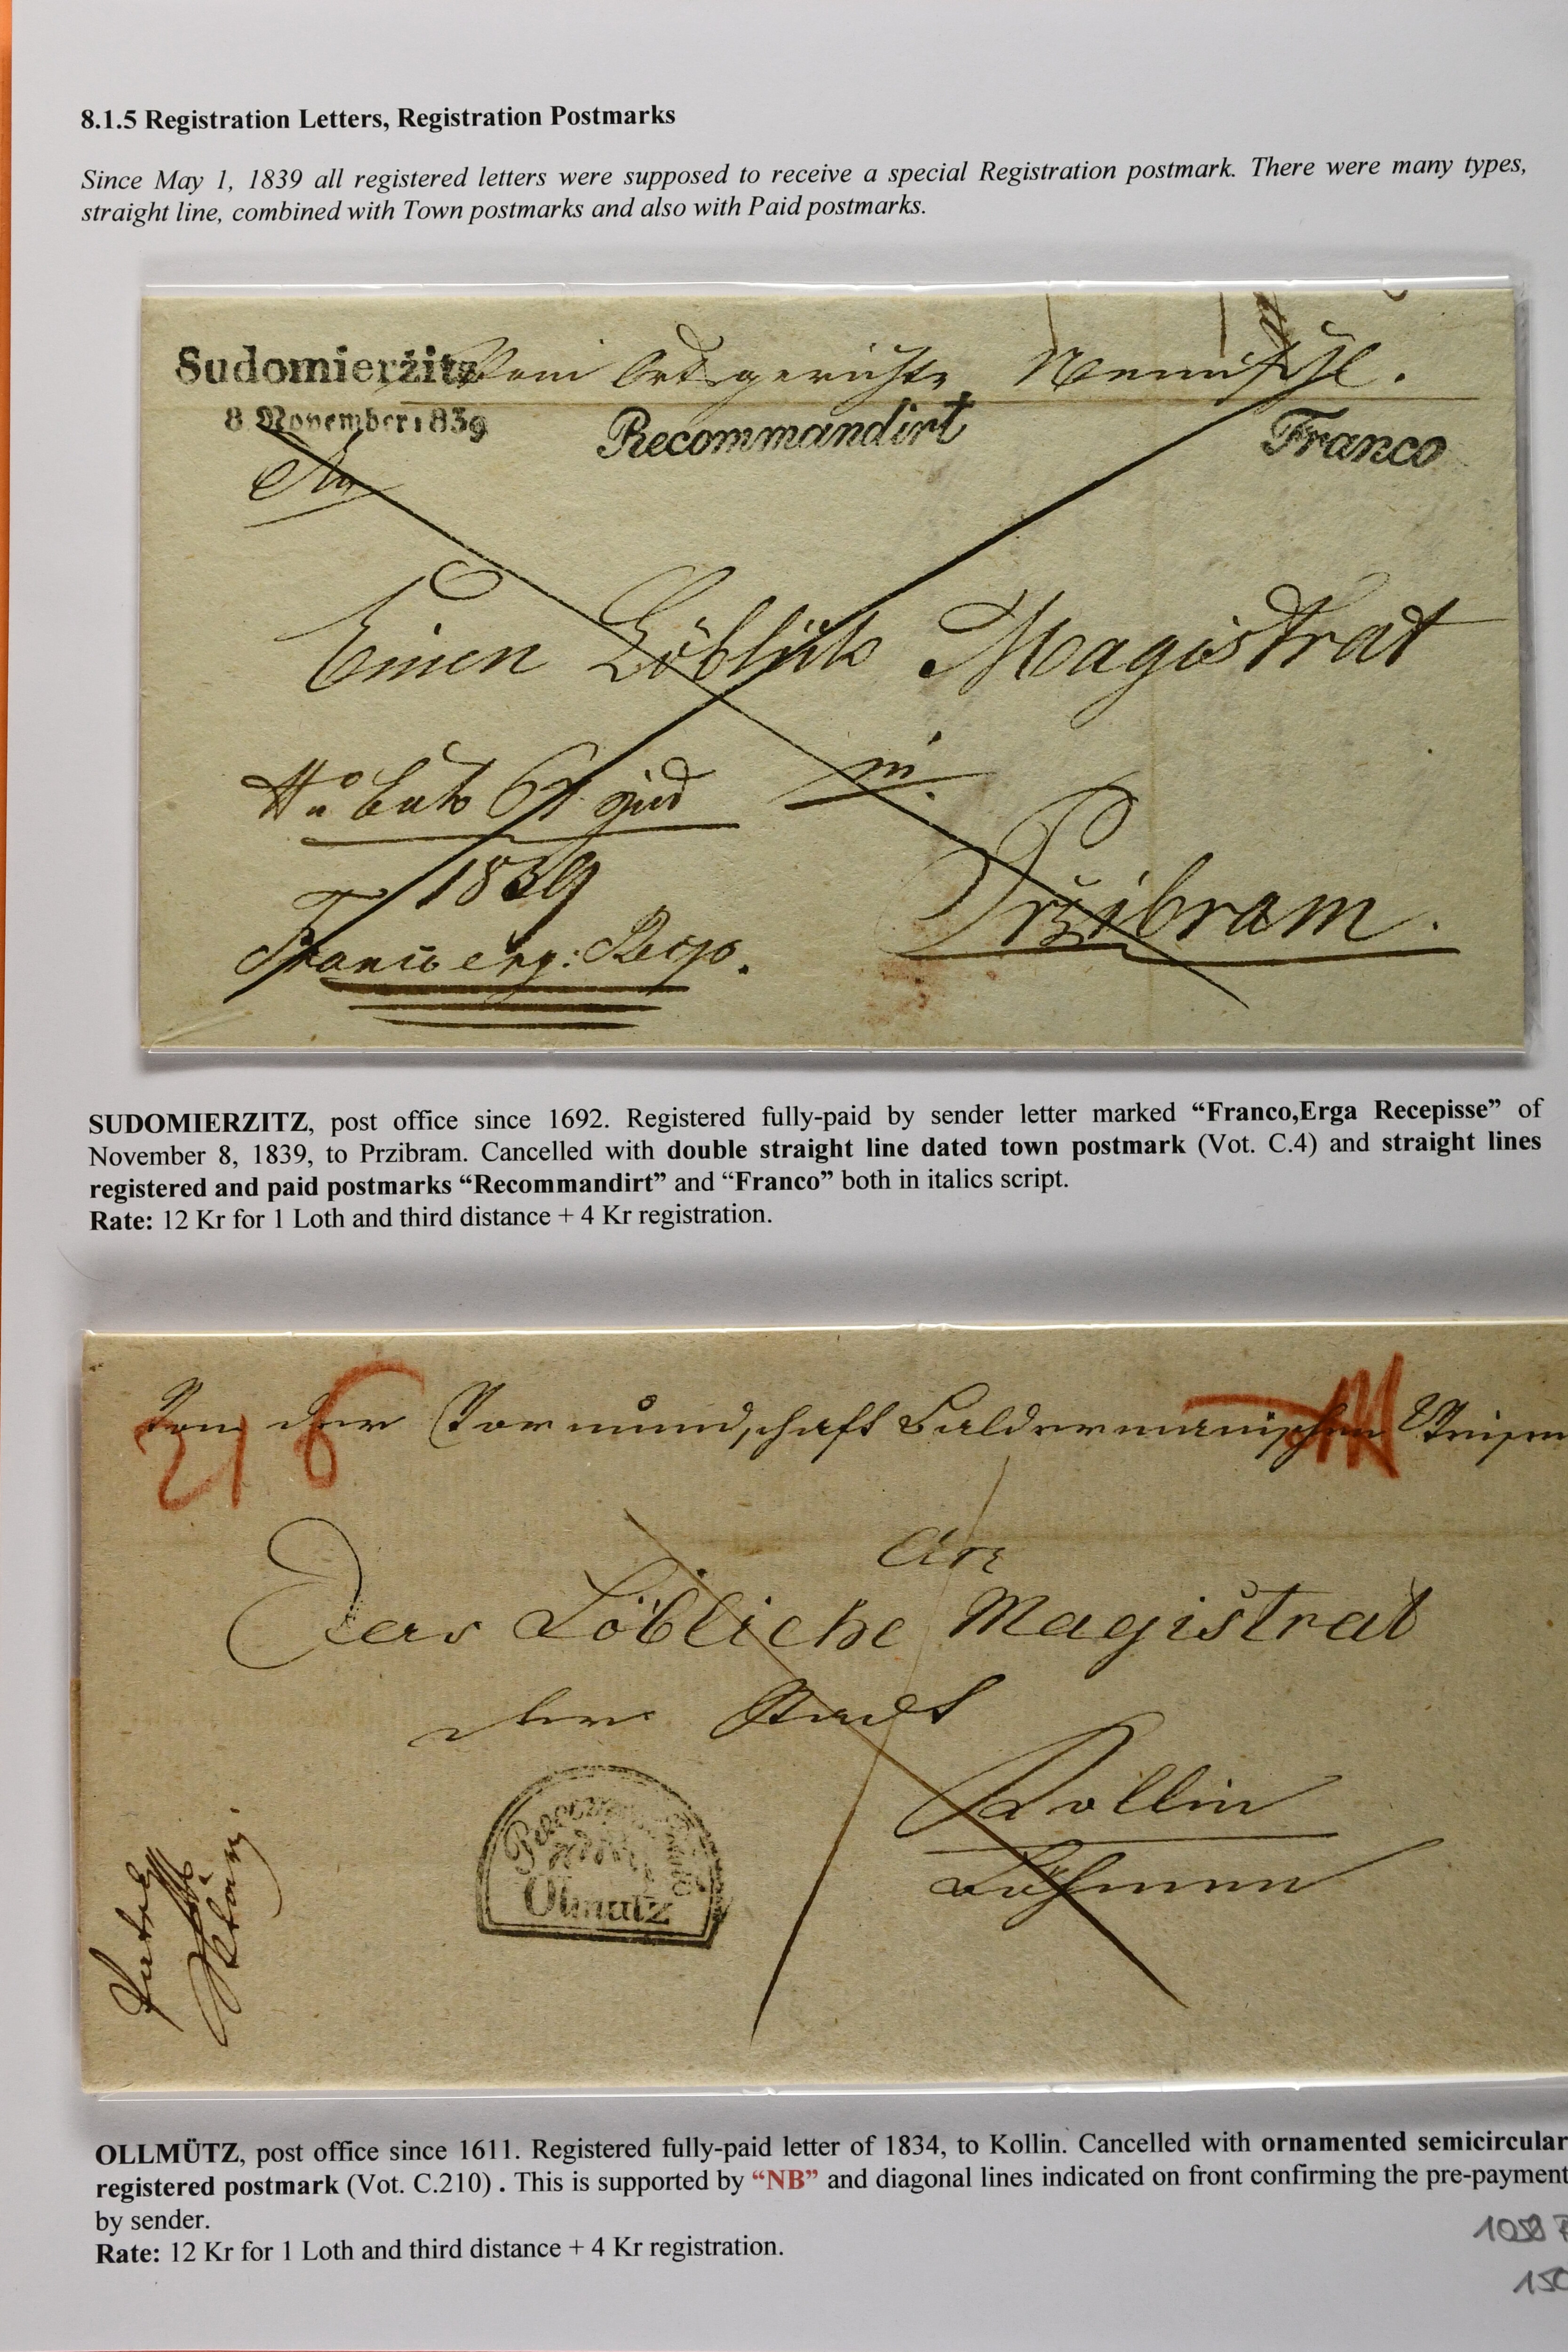 8.1.5 Registration Letters, Registration Postmarks
Since May 1, 1839 all registered letters were supposed to receive a special Registration postmark. There were many types,
straight line, combined with Town postmarks and also with Paid postmarks.
Sudomieržitz
Vom Ortsgerichte
8 November 1839
Recommandirt
Franco
An
Einen Löblich Magistrat
in
1839
Pržibram.
SUDOMIERZITZ, post office since 1692. Registered fully-paid by sender letter marked “Franco,Erga Recepisse” of
November 8, 1839, to Przibram. Cancelled with double straight line dated town postmark (Vot. C.4) and straight lines
registered and paid postmarks “Recommandirt” and “Franco” both in italics script.
Rate: 12 Kr for 1 Loth and third distance + 4 Kr registration.
Von der Vormundschaft
An
Das Löbliche Magistrat
der Stadt
Kollin
Böhmen
Olmutz
OLLMÜTZ, post office since 1611. Registered fully-paid letter of 1834, to Kollin. Cancelled with ornamented semicircular
registered postmark (Vot. C.210) . This is supported by “NB” and diagonal lines indicated on front confirming the pre-payment
by sender.
Rate: 12 Kr for 1 Loth and third distance + 4 Kr registration.